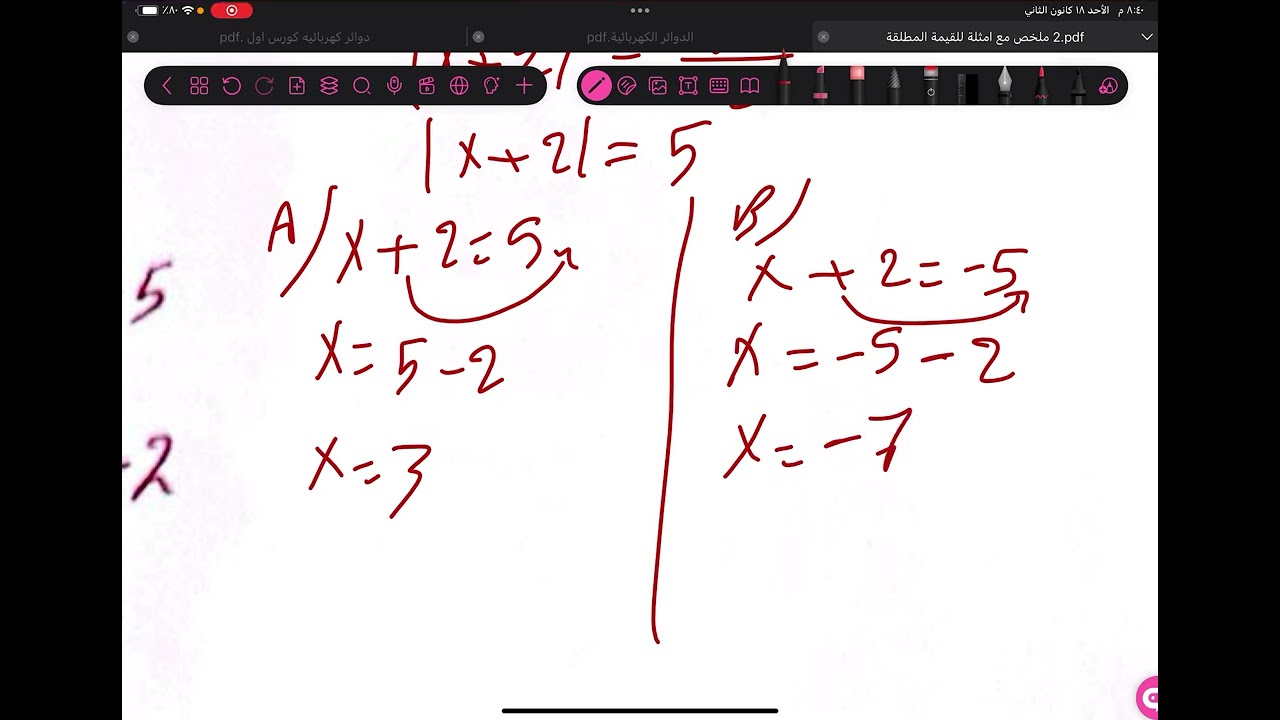 ٨:٤٠ م الأحد ١٨ كانون الثاني
٨٠٪
2 ملخص مع امثلة للقيمة المطلقة.pdf
الدوائر الكهربائية.pdf
دوائر كهربائيه كورس اول .pdf
|x+2| = 5
A) x+2=5
x=5-2
x=3
B)
x+2=-5
x=-5-2
x=-7
5
-2